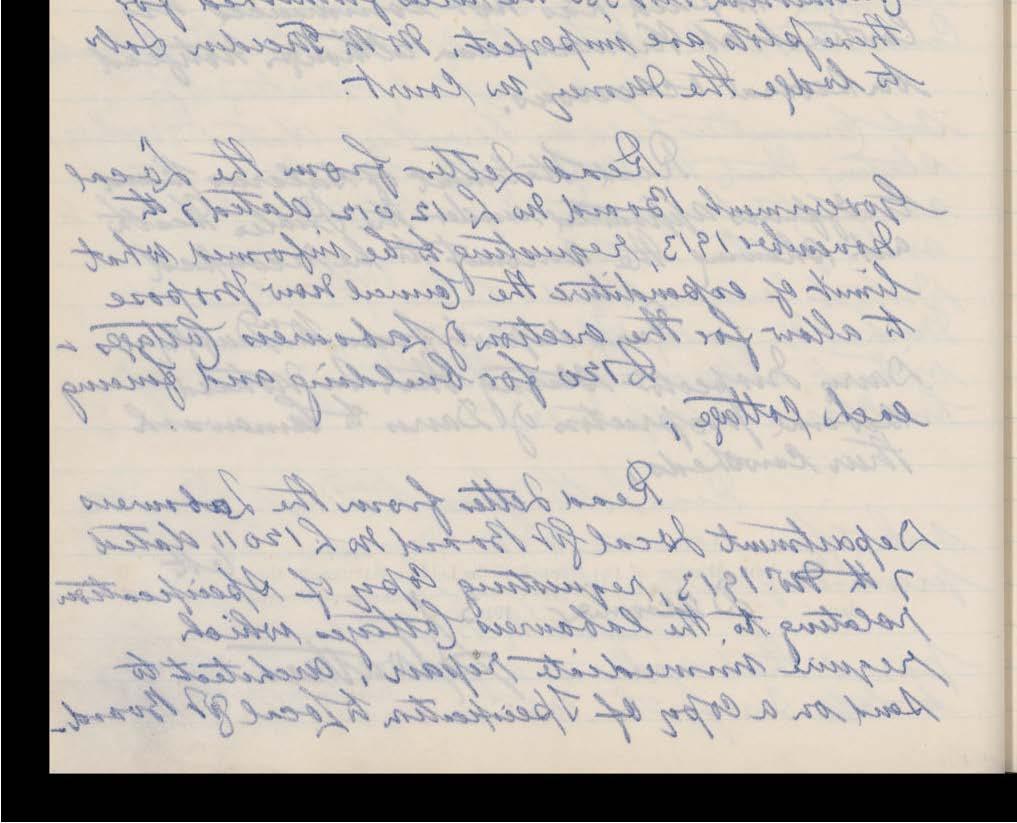 these plots are imperfect. Mr M. Sol
to lodge the money in Court.
Read Letter from the Local
Government Board No L. 12012 dated 7th
November 1913, requesting to be informed what
limit of expenditure the Council now propose
to allow for the erection of Labourers Cottages -
£120 for building and fencing
each Cottage,
Read Letter from the Labourers
Department Local Gt Board No L 12011 dated
7th Nov. 1913, requesting Copy of Specification
relating to the Labourers Cottages which
require immediate repair, Architect to
send on a Copy of Specification to Local Gt Board.